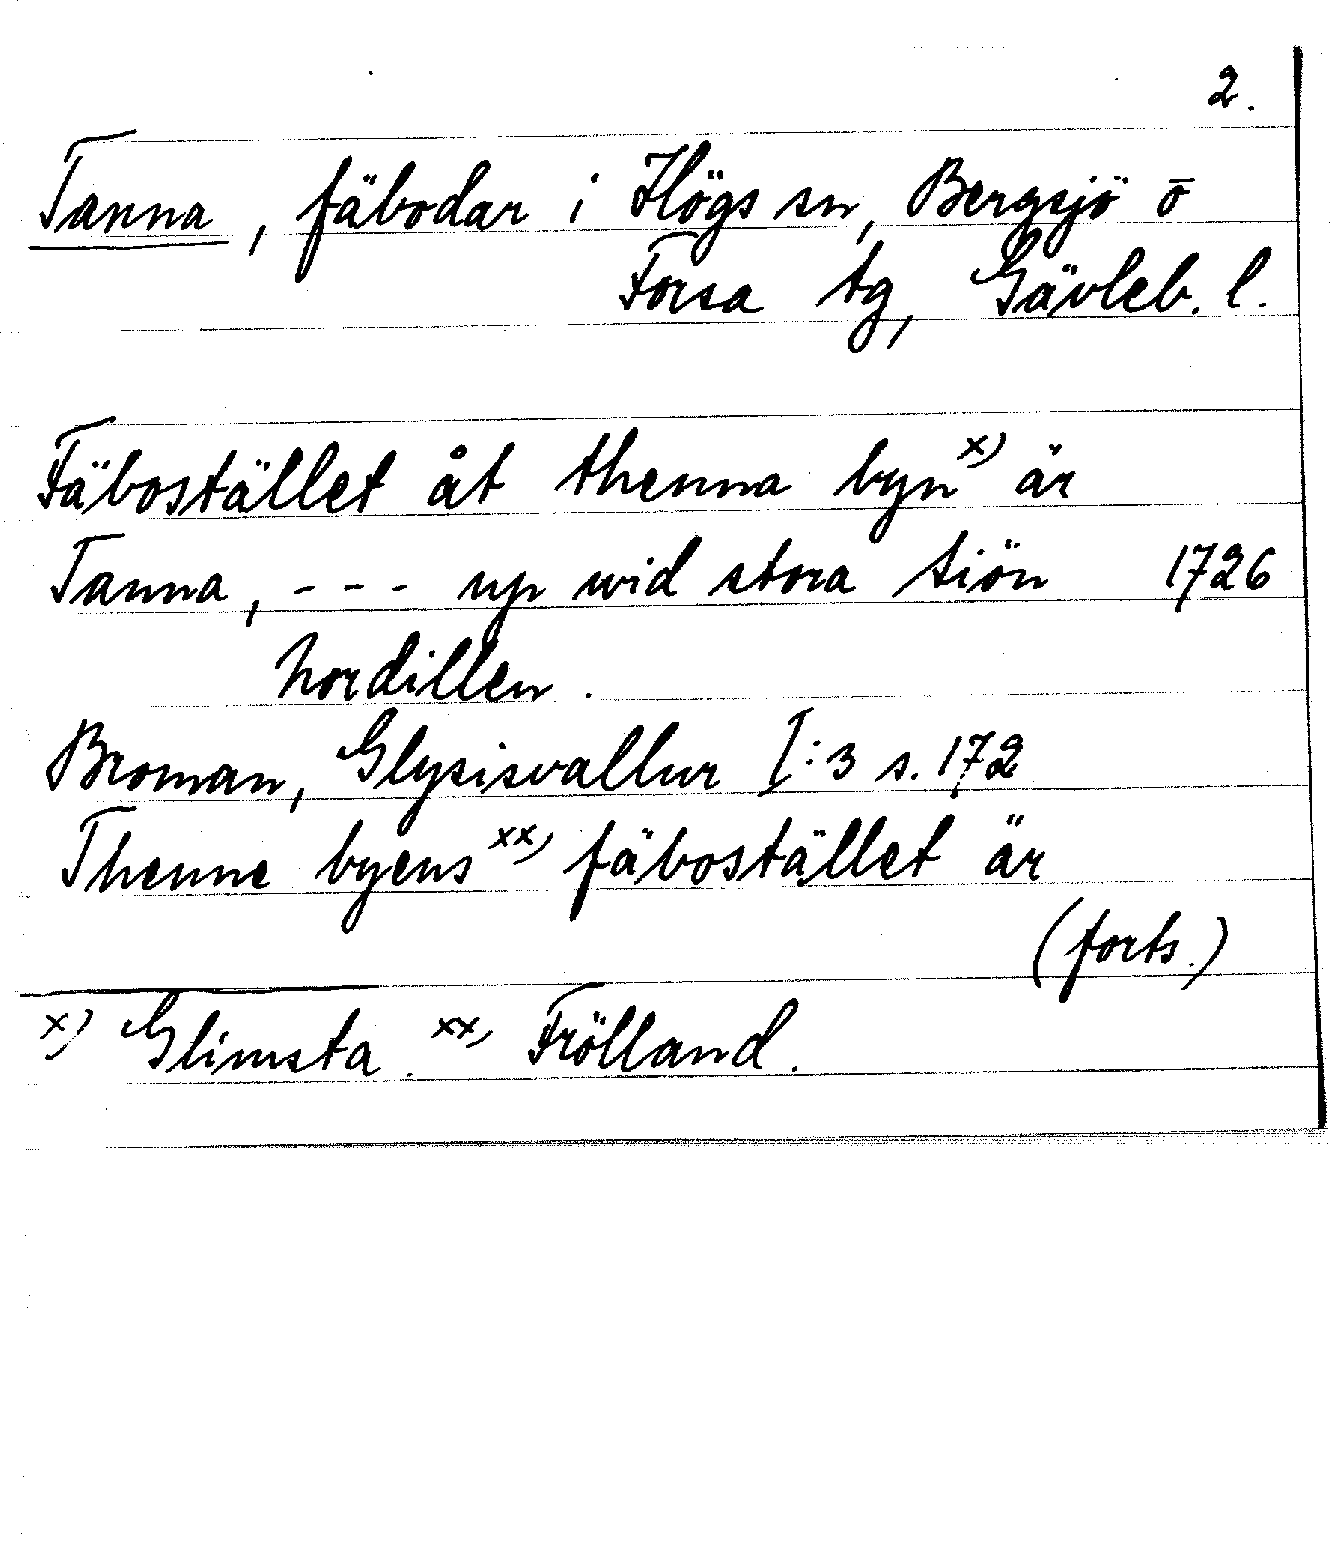 2.
Tanna, fäbodar i Högs sn, Bergsjö o
Forsa tg, Gävleb. l.
Fäbostället åt thenna byn x) är
Tanna, - - - up wid stora tiön 1726
Nordillen.
Broman, Glysisvallur I:3 s. 172
Thenne byens xx) fäbostället är
(forts.)
x) Glimsta. xx) Frölland.